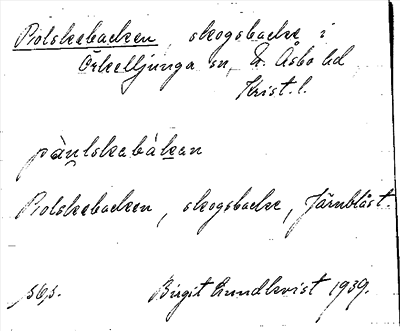 Piolskebacken, skogsbacke i
Örkelljunga sn, N. Åsbo hd
Krist. l.
pànlskabàkan
Piolskebacken, skogsbacke, Järnbläst.
Birgit Lundkvist 1939.